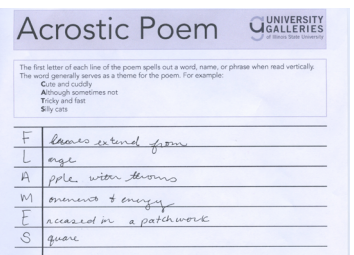 Acrostic Poem
UNIVERSITY
GALLERIES
of Illinois State University
The first letter of each line of the poem spells out a word, name, or phrase when read vertically.
The word generally serves as a theme for the poem. For example:
Cute and cuddly
Although sometimes not
Tricky and fast
Silly cats
F extend from
L arge
A pple with thorns
M ovement & energy
E ncased in a patchwork
S quare